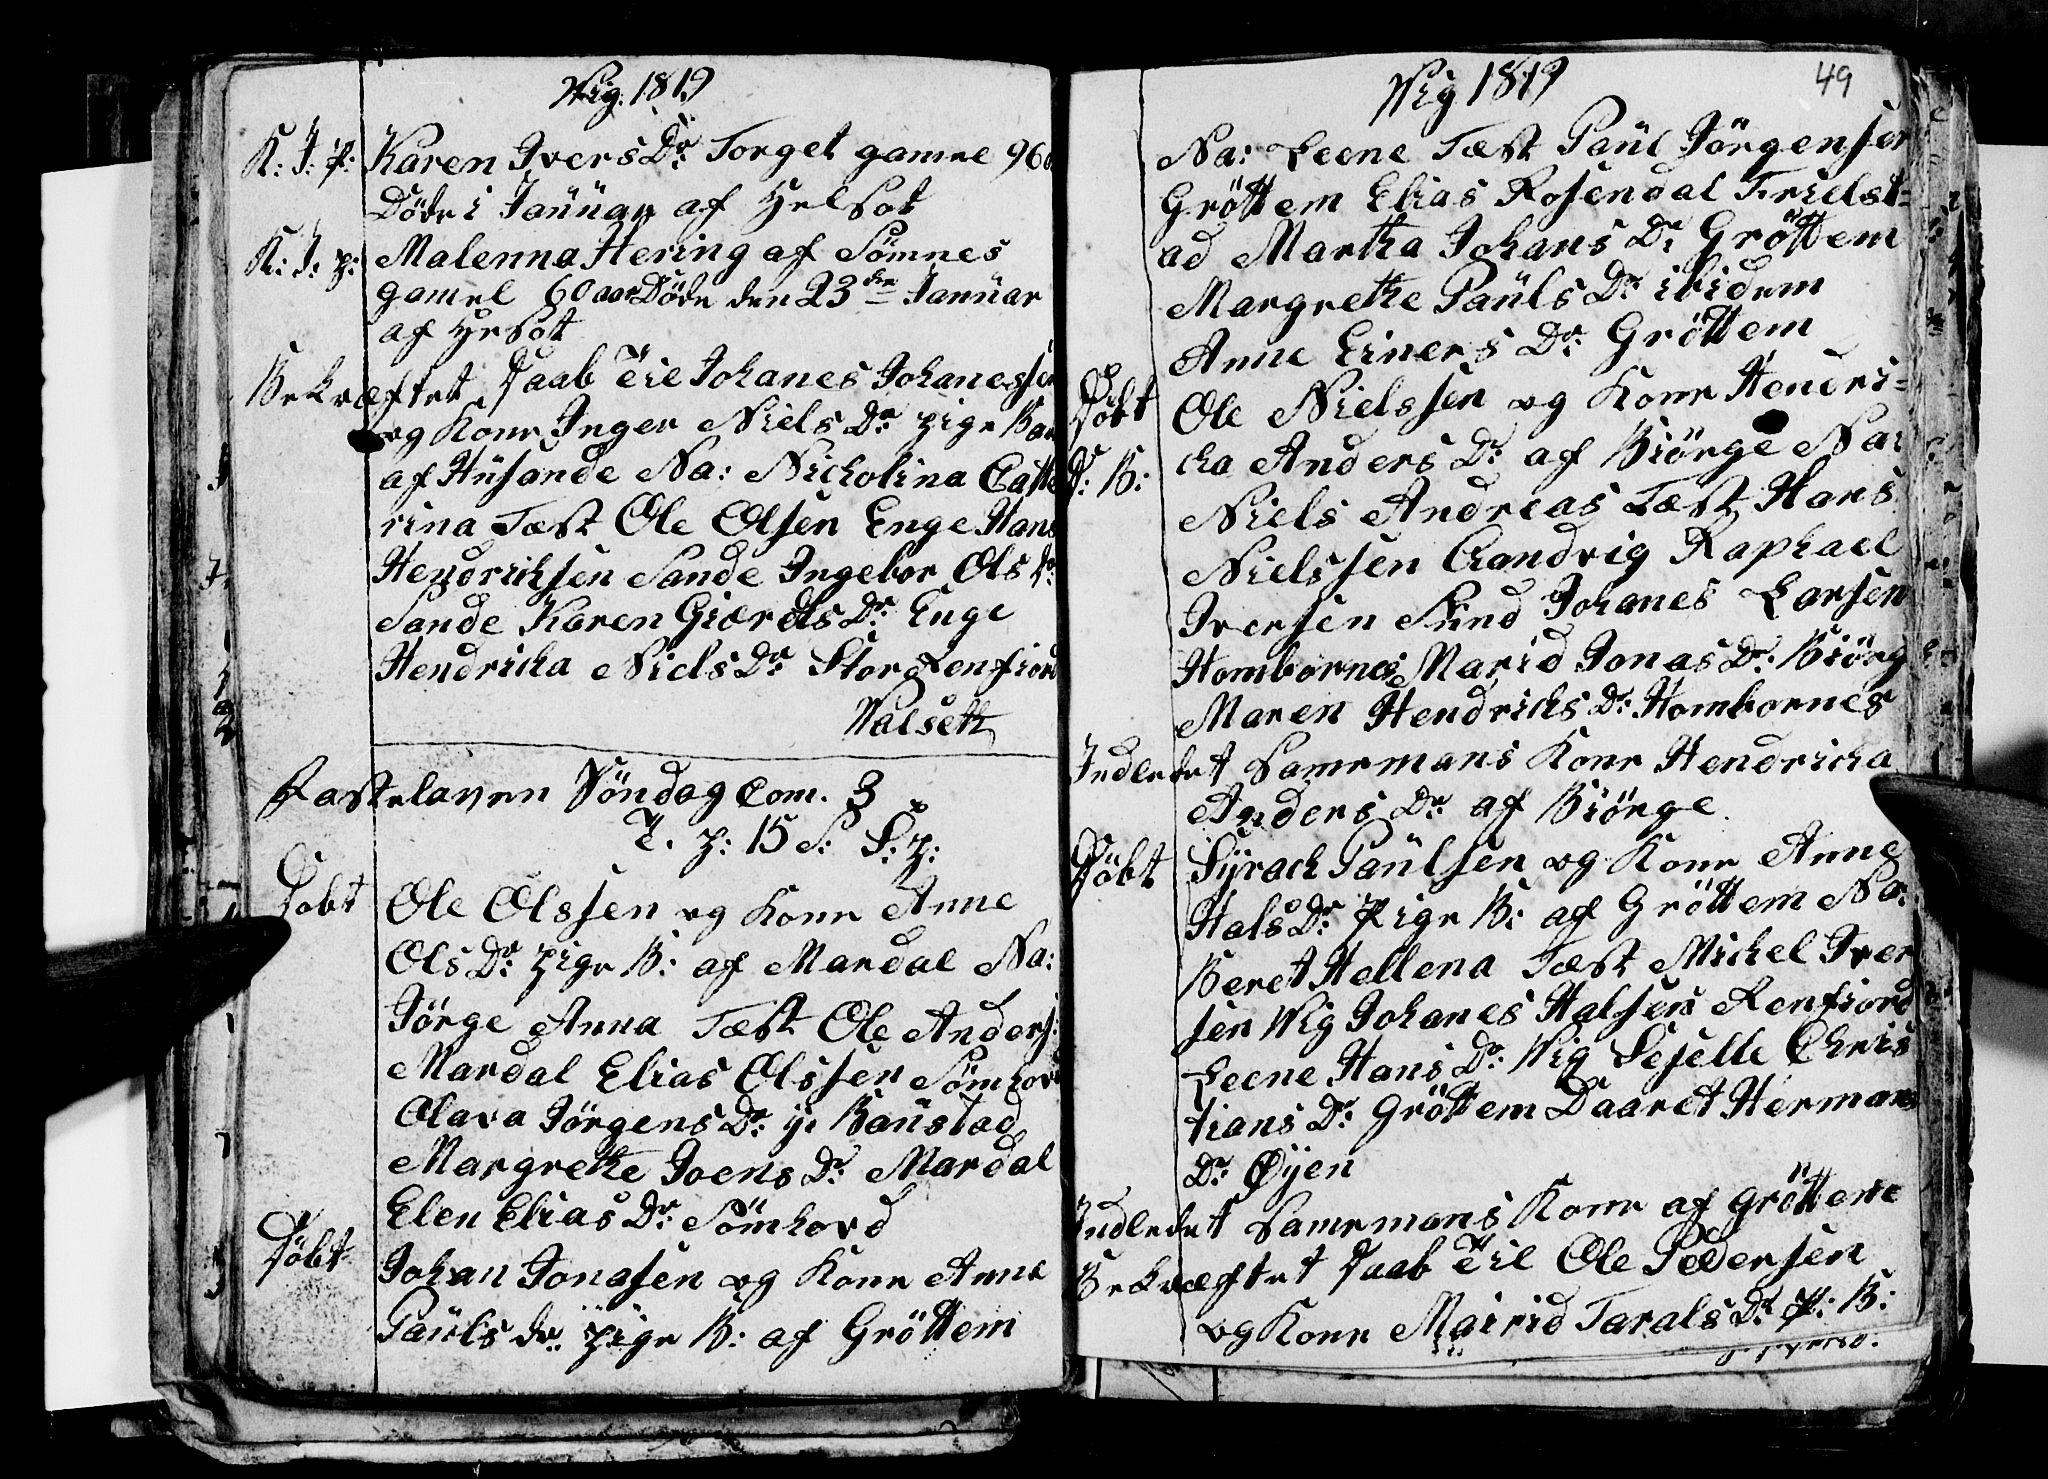 Wig. 1819
K: J: p: Karen Ivers Dr: Torget gamel 96
Döde i Januar af Helsot
K: J: p: Malenna Hering af Sömnes
gamel 60 aar Döde den 23de Januar
af Helsot
Bekræftet Daab Til Johanes Johanessen
og Kone Inger Niels Dr pige Bar
af Husande Na: Nicholina Catte
rina Tæst Ole Olsen Enge Hans
Hendrichsen Sande Ingebor Ols Dr:
Sande Karen Giærdts Dr: Enge
Hendricha Niels Dr: Stor Renfiord
Walseth
Fastelaven Söndag Com. 3
T. p: 15 S: S: p:
Döbt Ole Olssen og Kone Anne
Ols Dr: pige B: af Mardal Na:
Jörge Anna Tæst Ole Anders:
Mardal Elias Olssen Sömhovd
Olava Jörgens Dr: y: Baustad
Margrethe Joens Dr: Mardal
Elen Elias Dr: Sömhovd
Döbt Johan Jonasen og Kone Anne
Pauls dr: pige B: af Gröttem
Wig 1819 49
Na: Leene Tæst Paul Jörgensen
Gröttem Elias Rosendal Trielst=
ad Martha Johans Dr Gröttem
Margrethe Pauls Dr ibidem
Anne Einers Dr: Gröttem
Döbt Ole Nielssen og Kone Hendri=
D: B: cha Anders Dr: af Biörge Na:
Niels Andreas Tæst Hans
Nielssen Aandvig Raphael
Iversen Sund Johanes Larsen
Hombornes Marid Jonas Dr: Biörg
Maren Hendrichs Dr: Hombornes
Indledet Sammemans Kone Hendricha
Anders Dr af Biörge.
Döbt Syrach Paulsen og Kone Anne
Hals Dr: Pige B: af Gröttem Na:
Beret Hellena Tæst Michel Iver
sen Wig Johanes Halsen Renfiord
Leene Hans Dr: Wig Seselle Chris
tians Dr: Gröttem Daaret Hermans
Dr: Øyen
Indledet Sammemans Kone af Gröttene
Bekræftet Daab Til Ole Pedersen
og Kone Mairid Tarals Dr p: B: